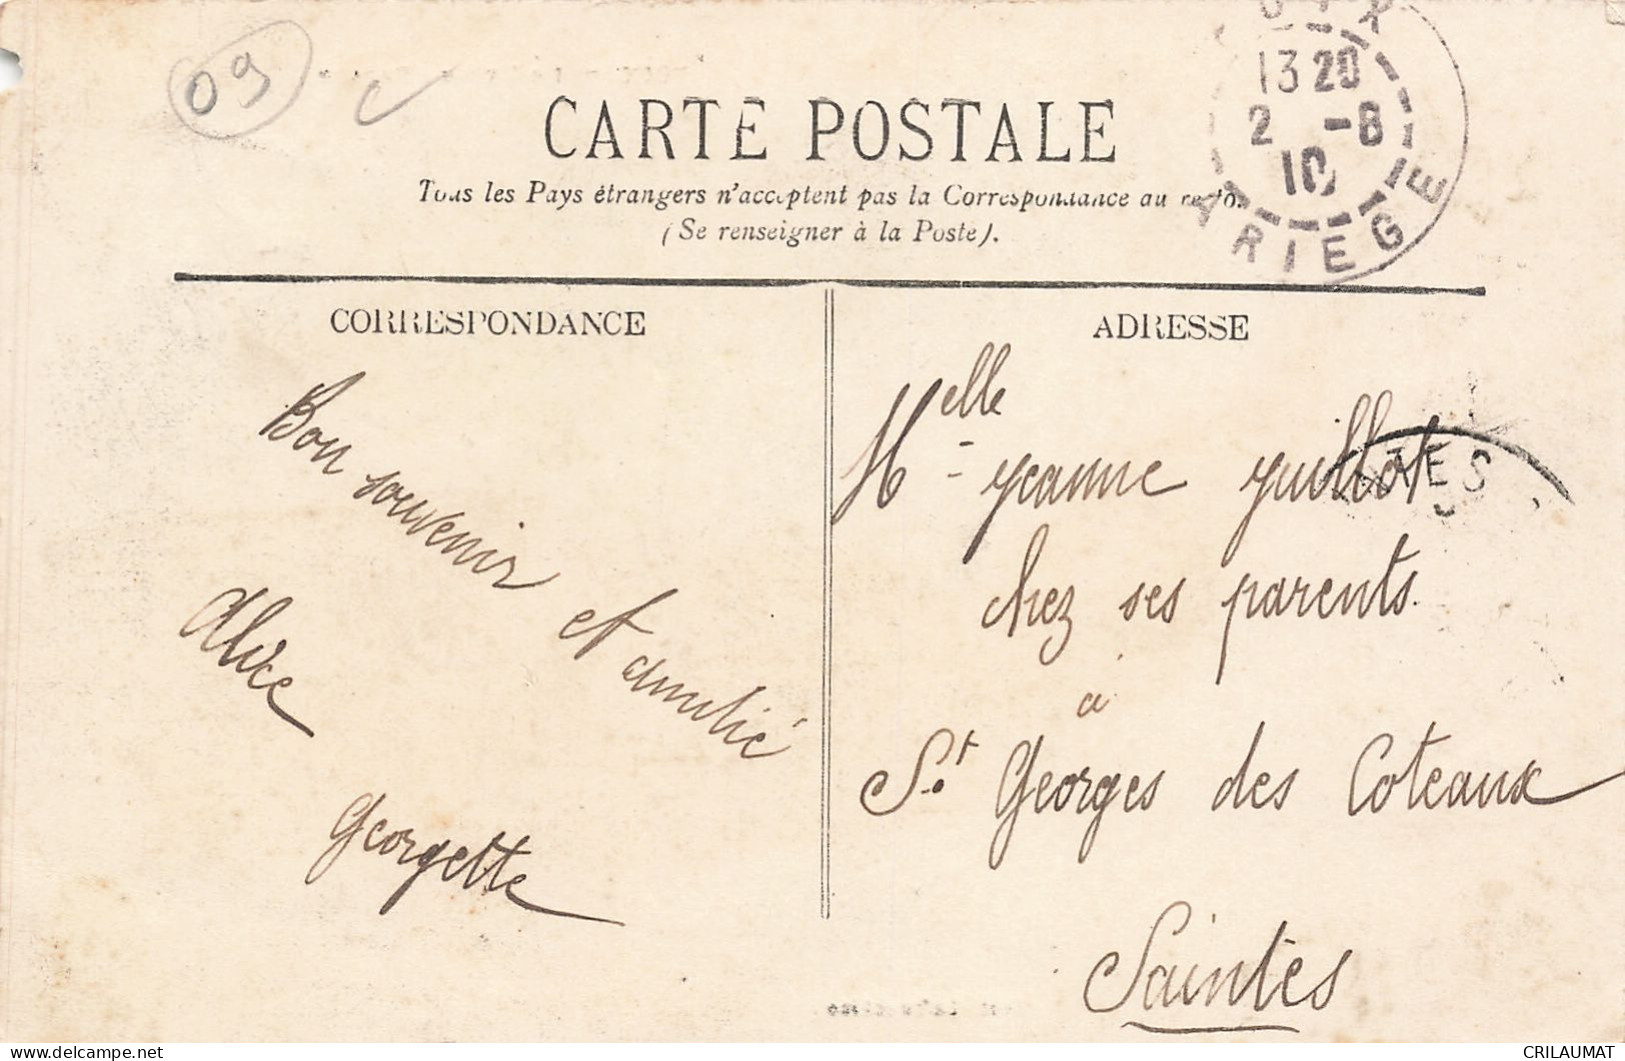 09
CARTE POSTALE
Tous les Pays étrangers n'acceptent pas la Correspondance au
(Se renseigner à la Poste).
13 20
2 -8
10
ARIEGE
CORRESPONDANCE
ADRESSE
Bon souvenir
et amitié
Alice
Georgette
Melle Jeanne Guillot
chez ses parents.
à
St Georges des Coteaux
Saintes
TES
CRILAUMAT